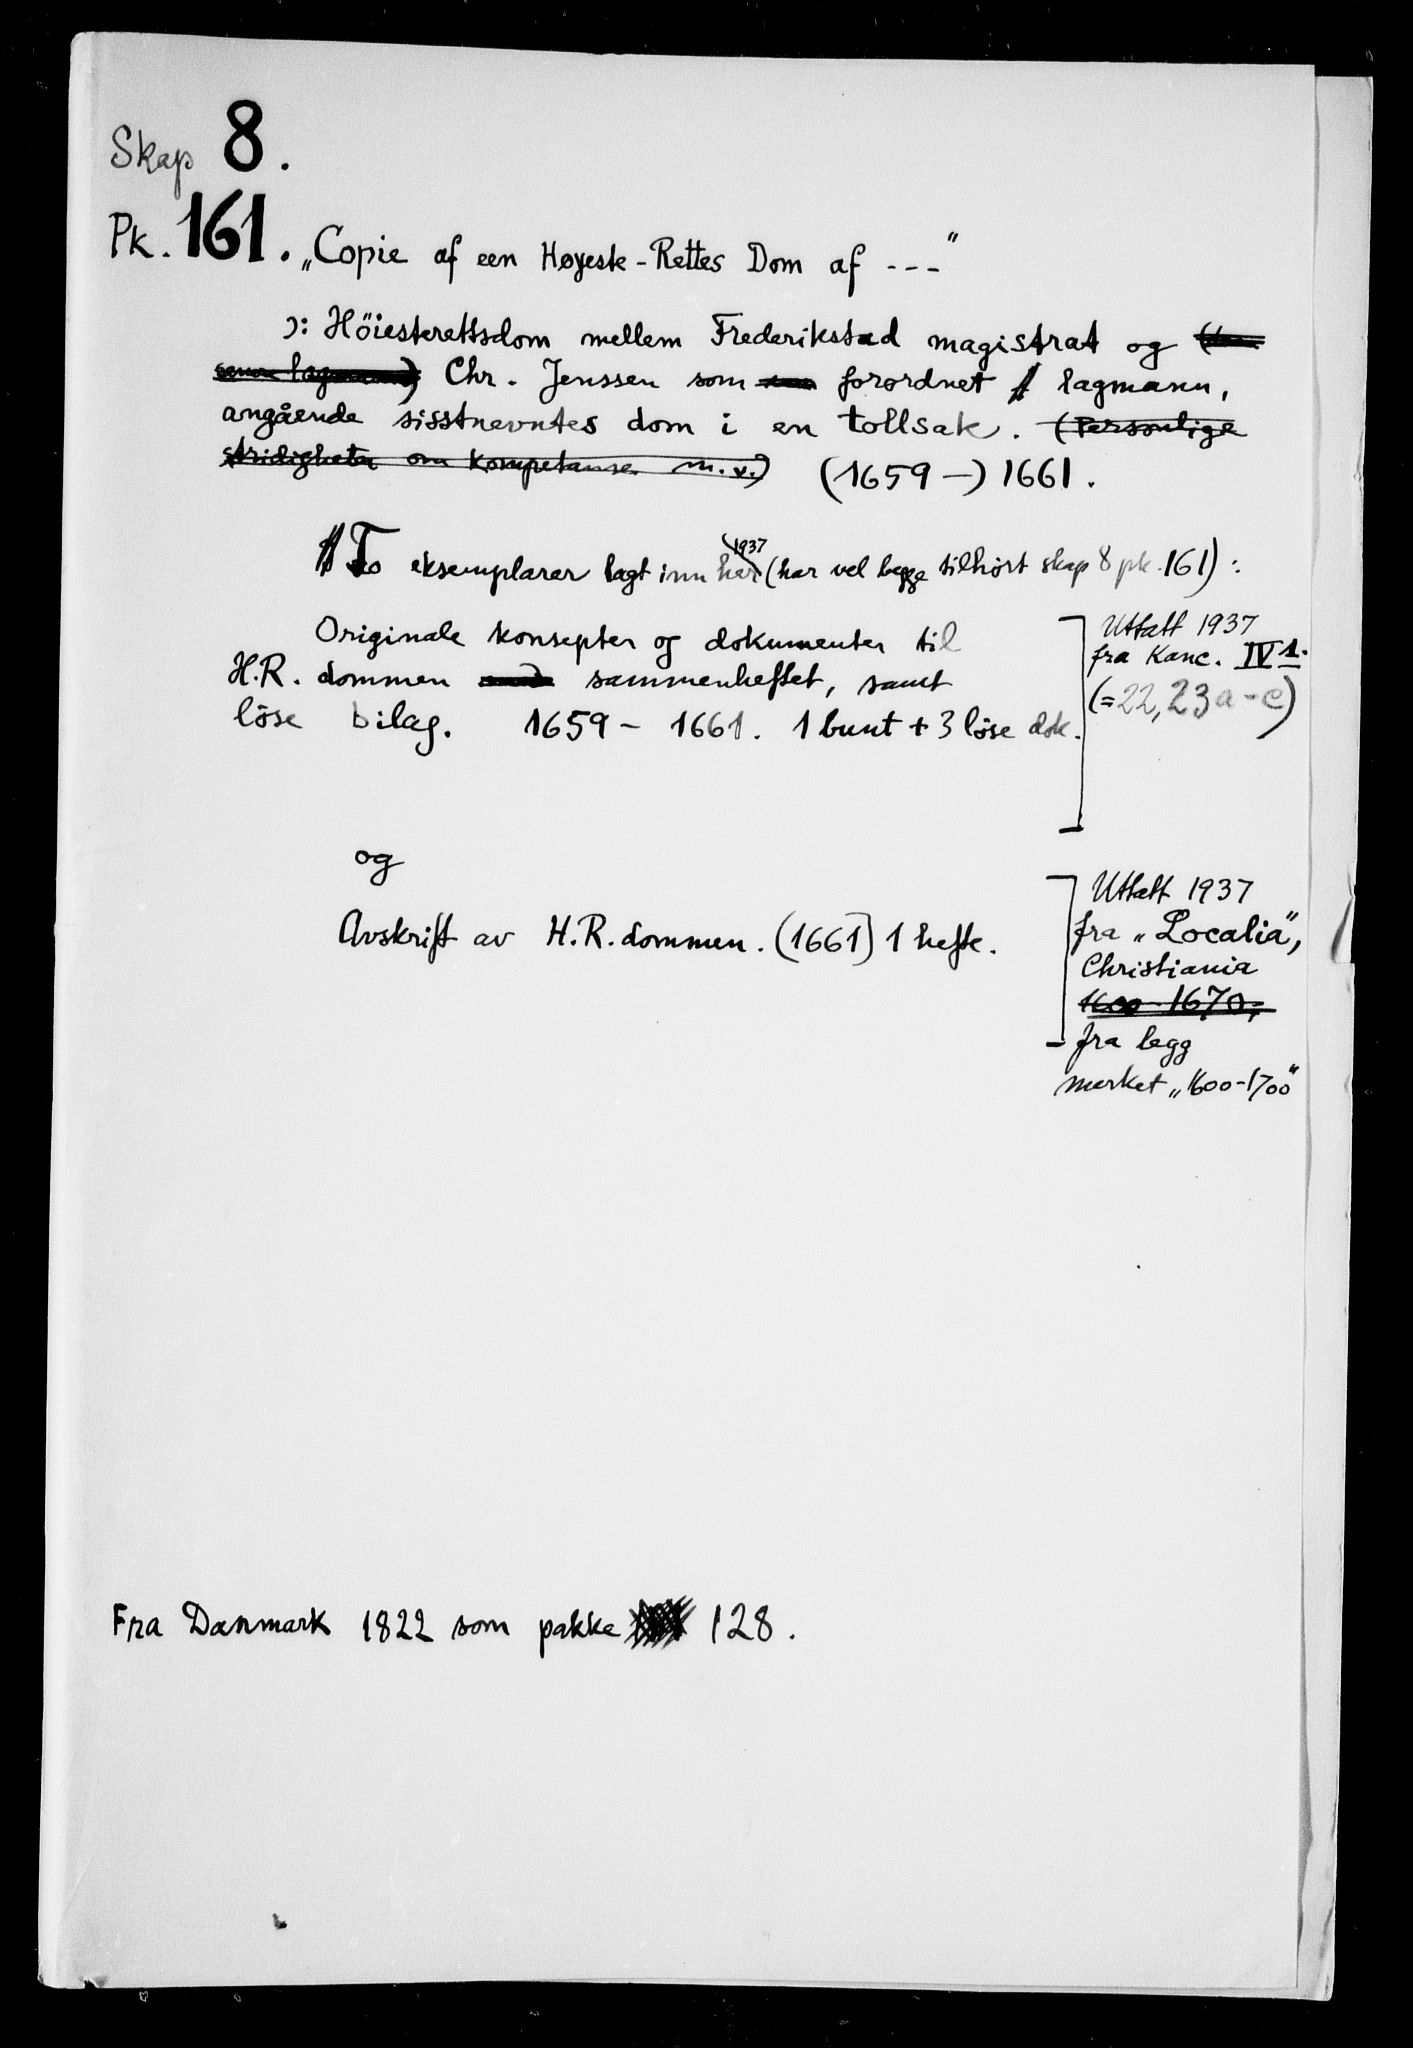 Skap 8.
Pk. 161. „Copie af een Høyeste-Rettes Dom af ---"
ɔ: Höiesterettsdom mellem Frederikstad magistrat og (den
senere lagmann) Chr. Jenssen som forordnet lagmann,
angående sisstnevntes dom i en tollsak. (Personlige
stridigheter om kompetanse m.v.) (1659-) 1661.
To eksemplarer lagt inn her 1937 (har vel begge tilhørt skap 8 pk. 161):
Originale konsepter og dokumenter til
H.R. dommen sammenheftet, samt
löse bilag. 1659 - 1661. 1 bunt + 3 löse dok.
Uttatt 1937
fra Kanc. IV 1.
(=22, 23a-c)
og
Avskrift av H.R. dommen. (1661) 1 hefte.
Uttatt 1937
fra „Localia",
Christiania
1600-1670,
fra legg
merket „1600-1700"
Fra Danmark 1822 som pakke 128.